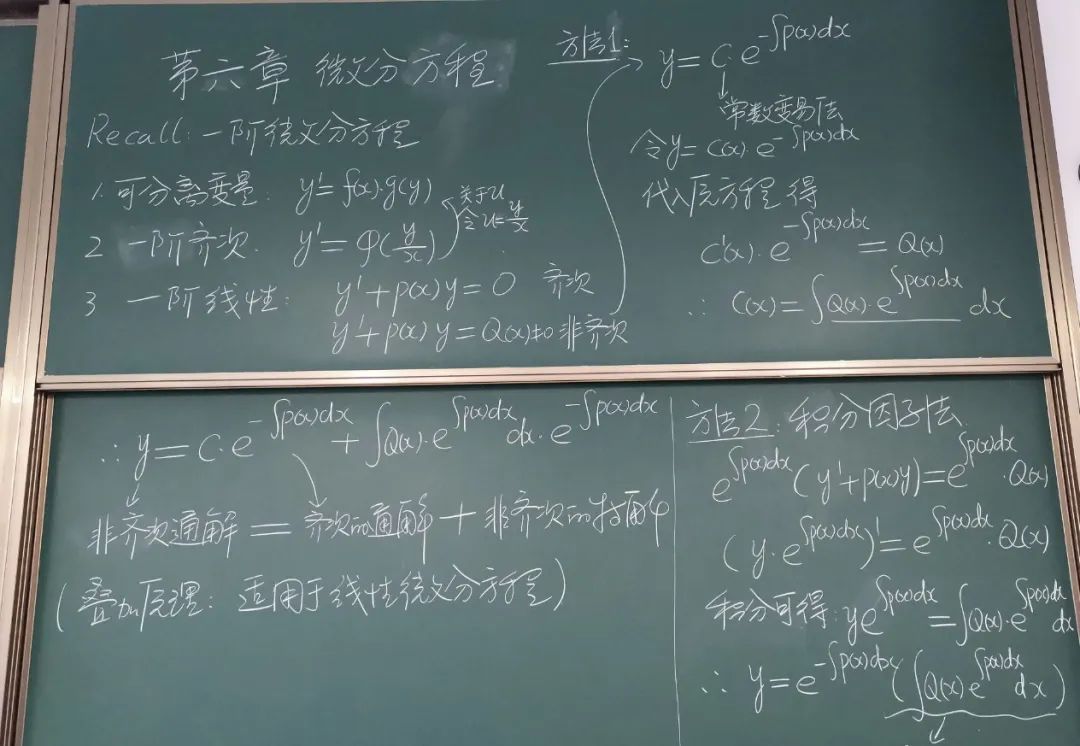 第六章 微分方程
Recall: 一阶微分方程
1. 可分离变量: y' = f(x)·g(y)
2 一阶齐次. y' = φ(y/x) 关于u 令u=y/x
3 一阶线性: y' + p(x)y = 0 齐次
y' + p(x)y = Q(x)≠0 非齐次
方法1:
y = C·e^{-∫p(x)dx}
常数变易法
令y = C(x)·e^{-∫p(x)dx}
代入原方程得
C'(x)·e^{-∫p(x)dx} = Q(x)
∴ C(x) = ∫Q(x)·e^{∫p(x)dx} dx
∴ y = C·e^{-∫p(x)dx} + ∫Q(x)·e^{∫p(x)dx}dx·e^{-∫p(x)dx}
非齐次通解 = 齐次的通解 + 非齐次的特解
(叠加原理: 适用于线性微分方程)
方法2: 积分因子法
e^{∫p(x)dx}(y'+p(x)y) = e^{∫p(x)dx}·Q(x)
(y·e^{∫p(x)dx})' = e^{∫p(x)dx}·Q(x)
积分可得: ye^{∫p(x)dx} = ∫Q(x)·e^{∫p(x)dx}dx
∴ y = e^{-∫p(x)dx}(∫Q(x)e^{∫p(x)dx}dx)